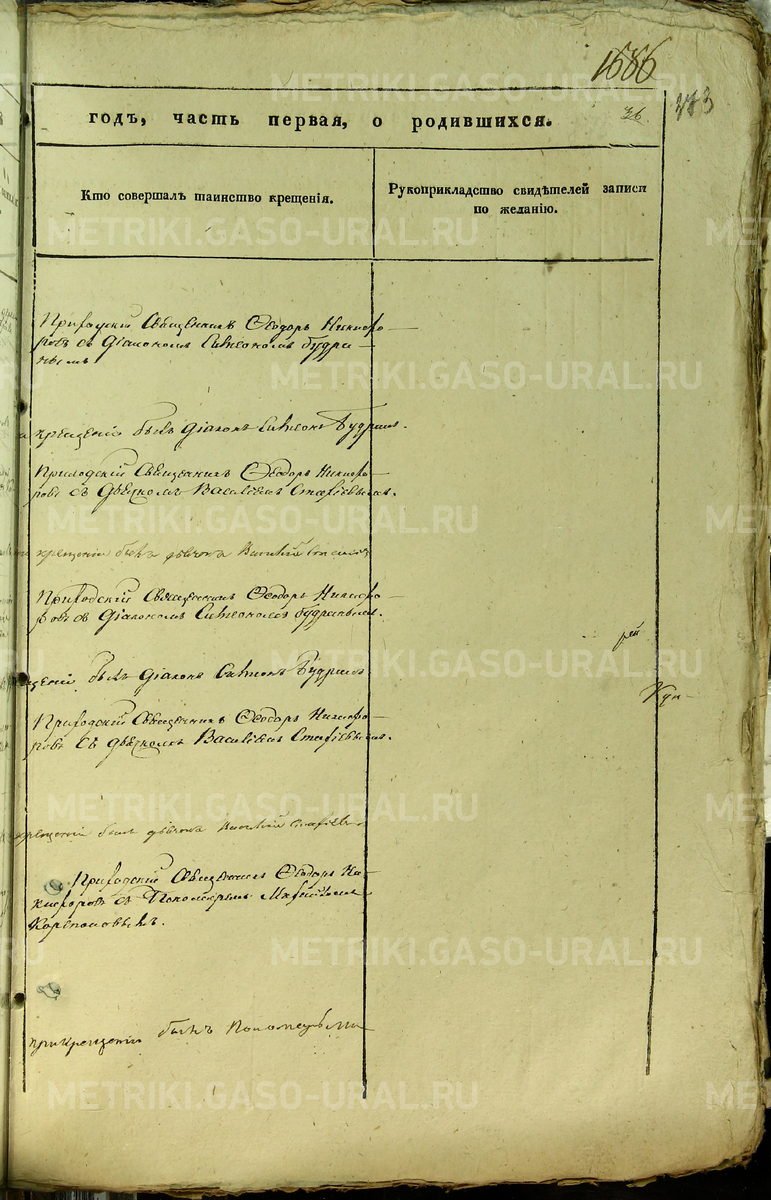 1686
783
годъ, часть первая, о родившихся.
36.
Кто совершалъ таинство крещенія.
Рукоприкладство свидѣтелей записи
по желанію.
Приходскій Священникъ Ѳеодоръ Никифо-
ровъ съ Діакономъ Симеономъ Будри-
нымъ
крещеніи былъ Діаконъ Симеонъ Будринъ.
Приходскій Священникъ Ѳеодоръ Никифо-
ровъ съ Дьячкомъ Василіемъ
крещеніи былъ дьячокъ Василій
Приходскій Священникъ Ѳеодоръ Никифо-
ровъ съ Діакономъ Симеономъ Будринымъ.
рей
щеніи былъ Діаконъ Симеонъ Будринъ
Кун-
Приходскій Священникъ Ѳеодоръ Никифо-
ровъ съ Дьячкомъ Василіемъ
крещеніи былъ дьячокъ Василій
Приходскій Священникъ Ѳеодоръ Ни-
кифоровъ съ Пономаремъ
при крещеніи былъ
METRIKI.GASO-URAL.RU